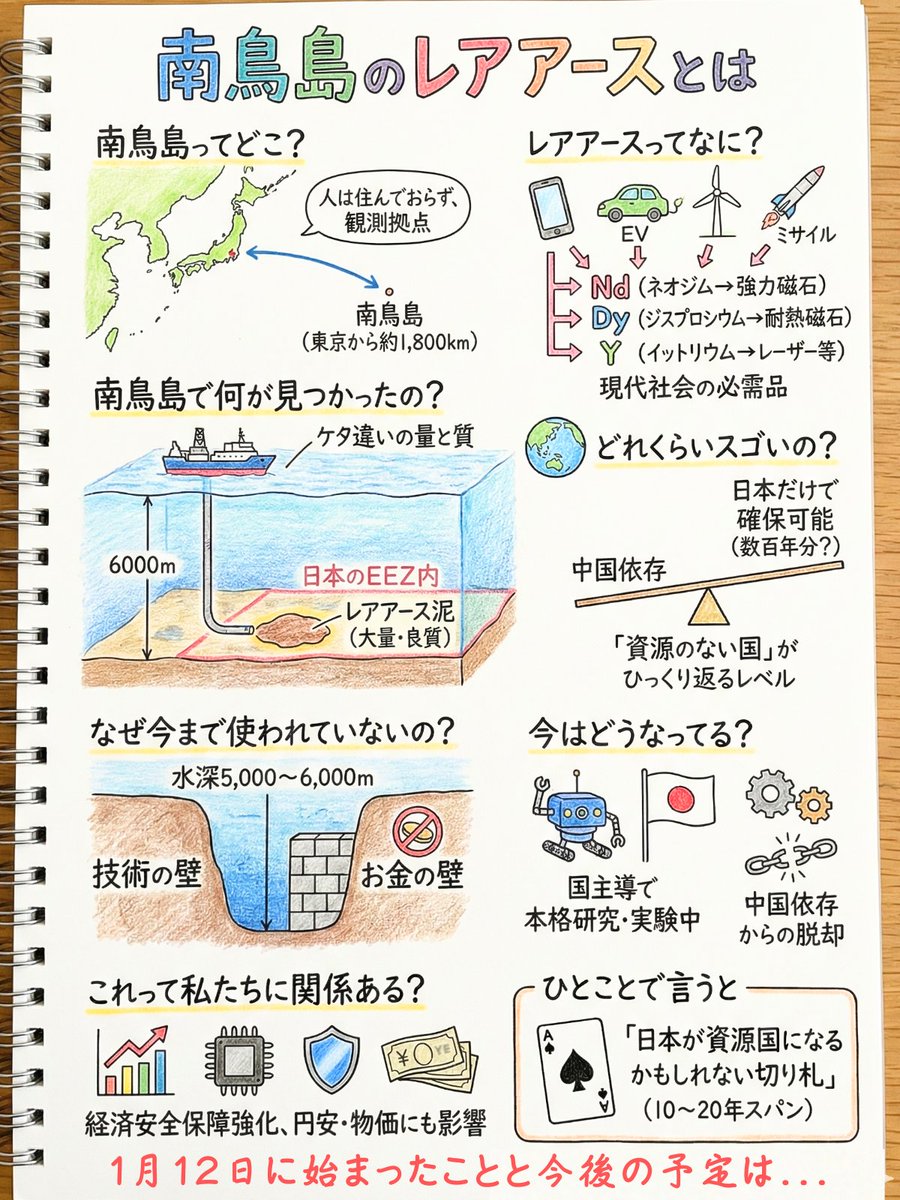 南鳥島のレアアースとは
南鳥島ってどこ?
人は住んでおらず、
観測拠点
南鳥島
(東京から約1,800km)
レアアースってなに?
EV
ミサイル
Nd (ネオジム→強力磁石)
Dy (ジスプロシウム→耐熱磁石)
Y (イットリウム→レーザー等)
現代社会の必需品
南鳥島で何が見つかったの?
ケタ違いの量と質
6000m
日本のEEZ内
レアアース泥
(大量・良質)
どれくらいスゴいの?
日本だけで
確保可能
(数百年分?)
中国依存
「資源のない国」が
ひっくり返るレベル
なぜ今まで使われていないの?
水深5,000〜6,000m
技術の壁
お金の壁
今はどうなってる?
国主導で
本格研究・実験中
中国依存
からの脱却
これって私たちに関係ある?
¥ YE
経済安全保障強化、円安・物価にも影響
ひとことで言うと
A
A
「日本が資源国になる
かもしれない切り札」
(10〜20年スパン)
1月12日に始まったことと今後の予定は...